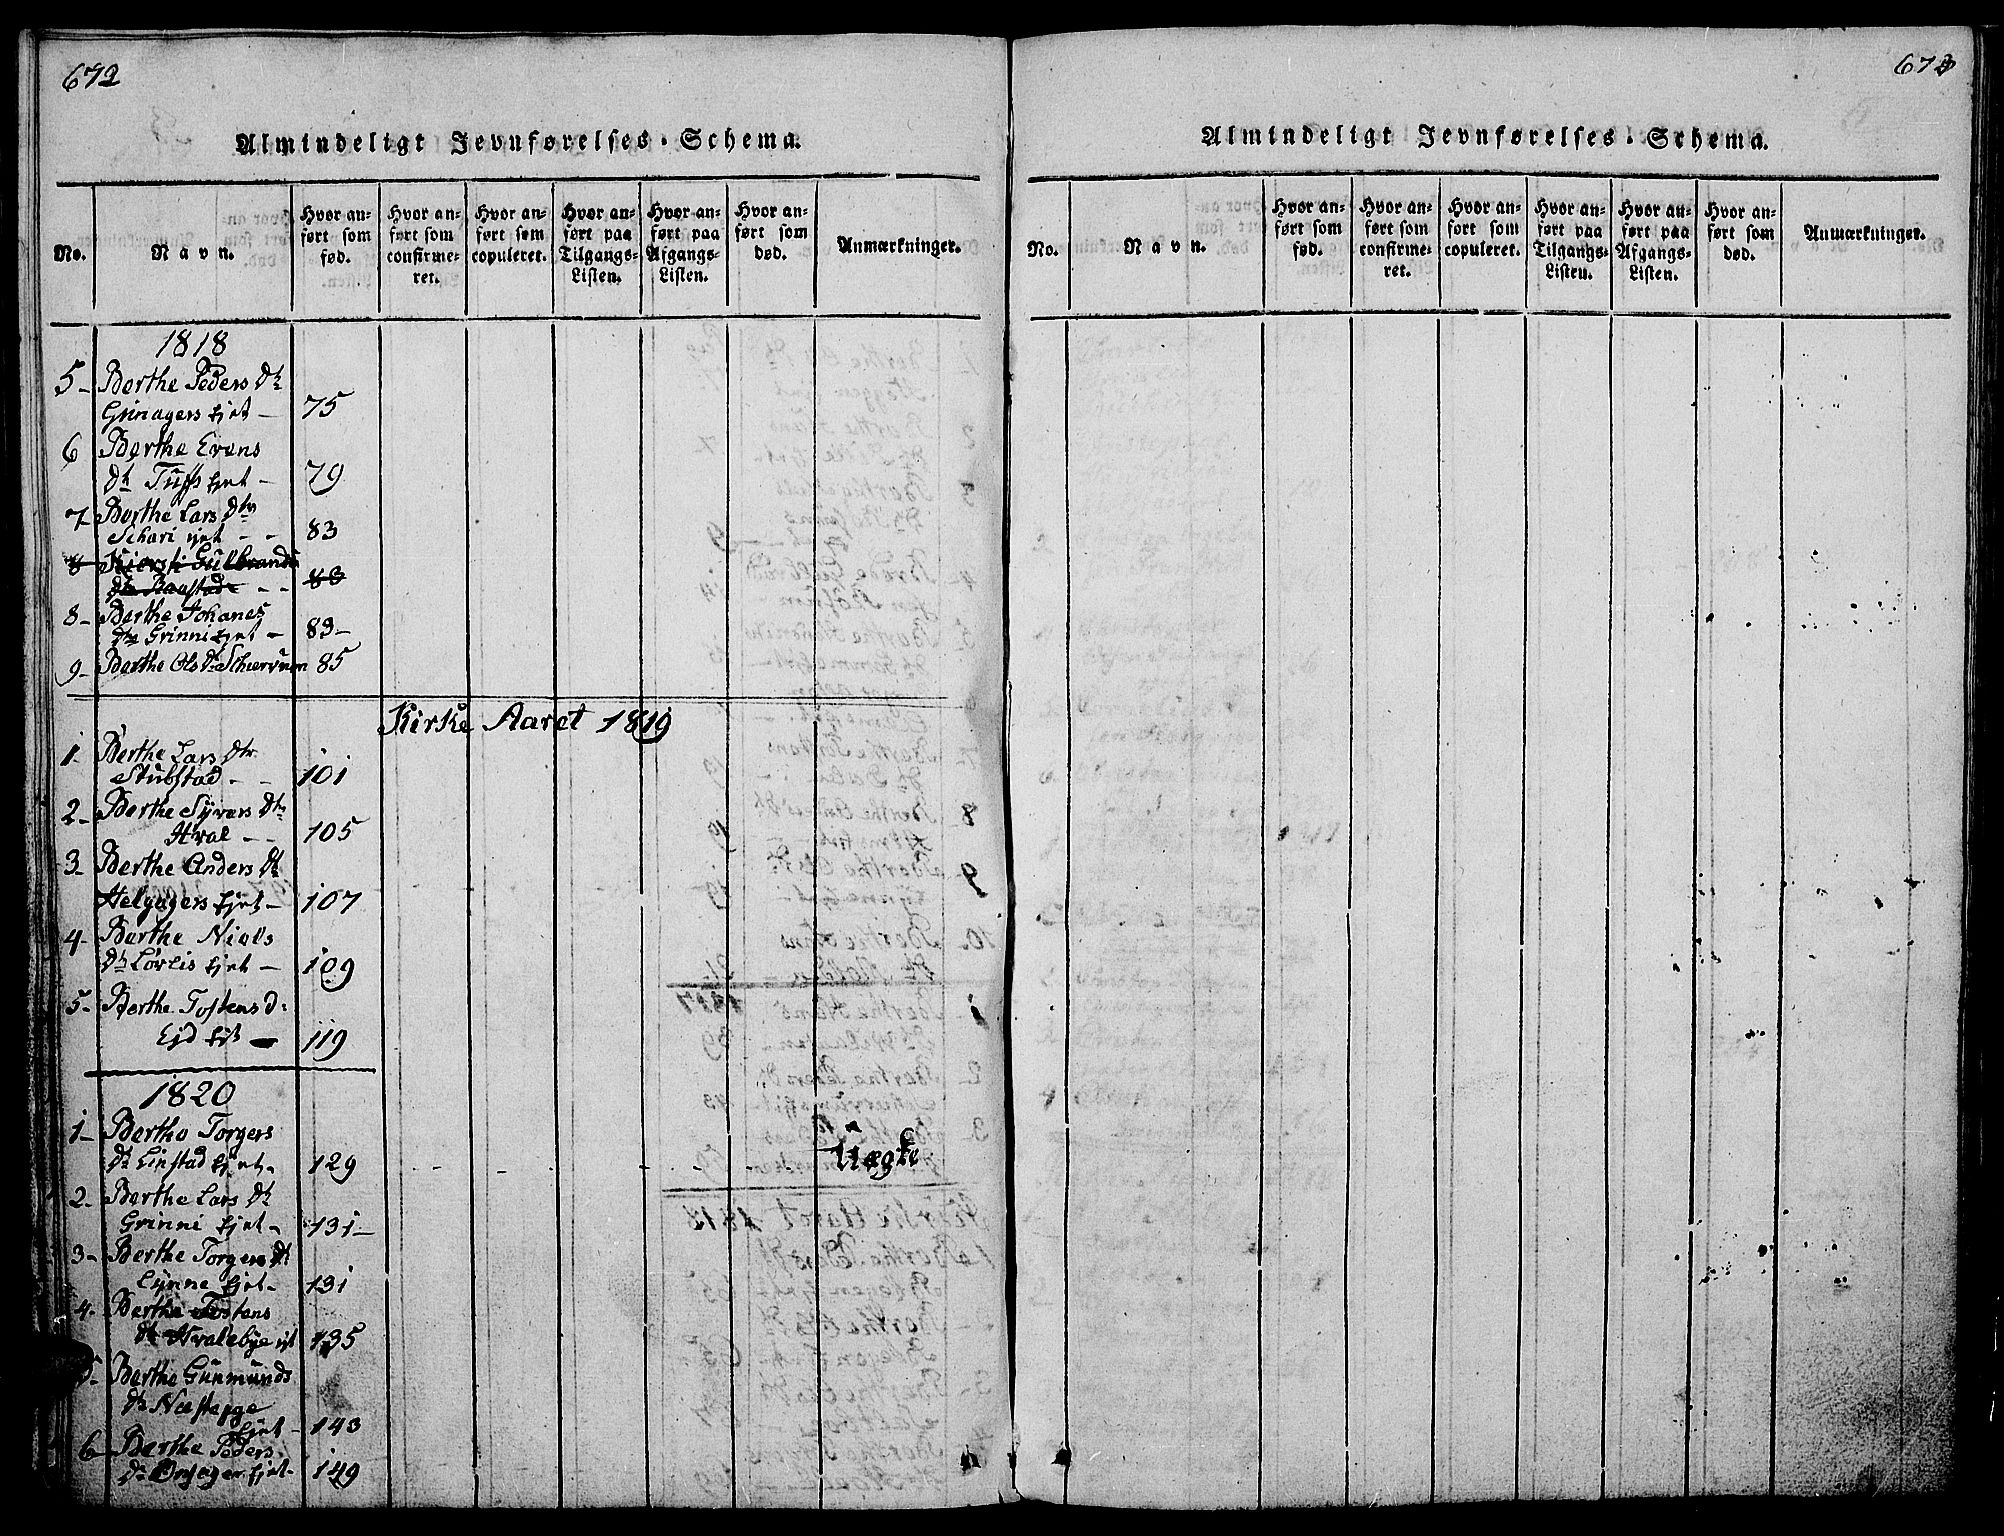 672
Almindeligt Jevnførelses-Schema.
No.
Navn.
Hvor an-
ført som
fød.
Hvor an-
ført som
confirme-
ret.
Hvor an-
ført som
copuleret.
Hvor an-
ført paa
Tilgangs-
Listen.
Hvor an-
ført paa
Afgangs-
Listen.
Hvor an-
ført som
død.
Anmærkninger.
1818
5- Berthe Peders Dtr
Grinagers Ejet - 75
6 Berthe Evens
Dtr ejet - 79
7- Berthe Lars Dtr
ejet - - 83
8 Kiersti Gulbrands
Dtr - - 83
8- Berthe Johanes
Dtr Grinni Ejet - 83-
9- Berthe Ols Dr 85
Kirke Aaret 1819
1- Berthe Lars Dtr
Stubstad - - 101
2- Berthe Syvers Dtr
Hval - - 105
3- Berthe Anders Dtr
Helgagers Ejet - 107
4- Berthe Niels
Dtr Ejet - 109
5- Berthe Tostens D:
Ejd Ejt - 119
1820
1- Berthe Torgers
Dtr Linstad Ejet - 129
Uægte
2- Berthe Lars Dtr
Grinni Ejet - 131-
3- Berthe Torgers Dtr
Lynne Ejet - 131
4- Berthe Tostens
Dtr Hvalebye ejt 135
5- Berthe Gunmunds
Dtr
Ejet - 143
6- Berthe Peders
Dtr Ejet - 149
673
Almindeligt Jevnførelses-Schema.
No.
Navn.
Hvor an-
ført som
fød.
Hvor an-
ført som
confirme-
ret.
Hvor an-
ført som
copuleret.
Hvor an-
ført paa
Tilgangs-
Listen.
Hvor an-
ført paa
Afgangs-
Listen.
Hvor an-
ført som
død.
Anmærkninger.